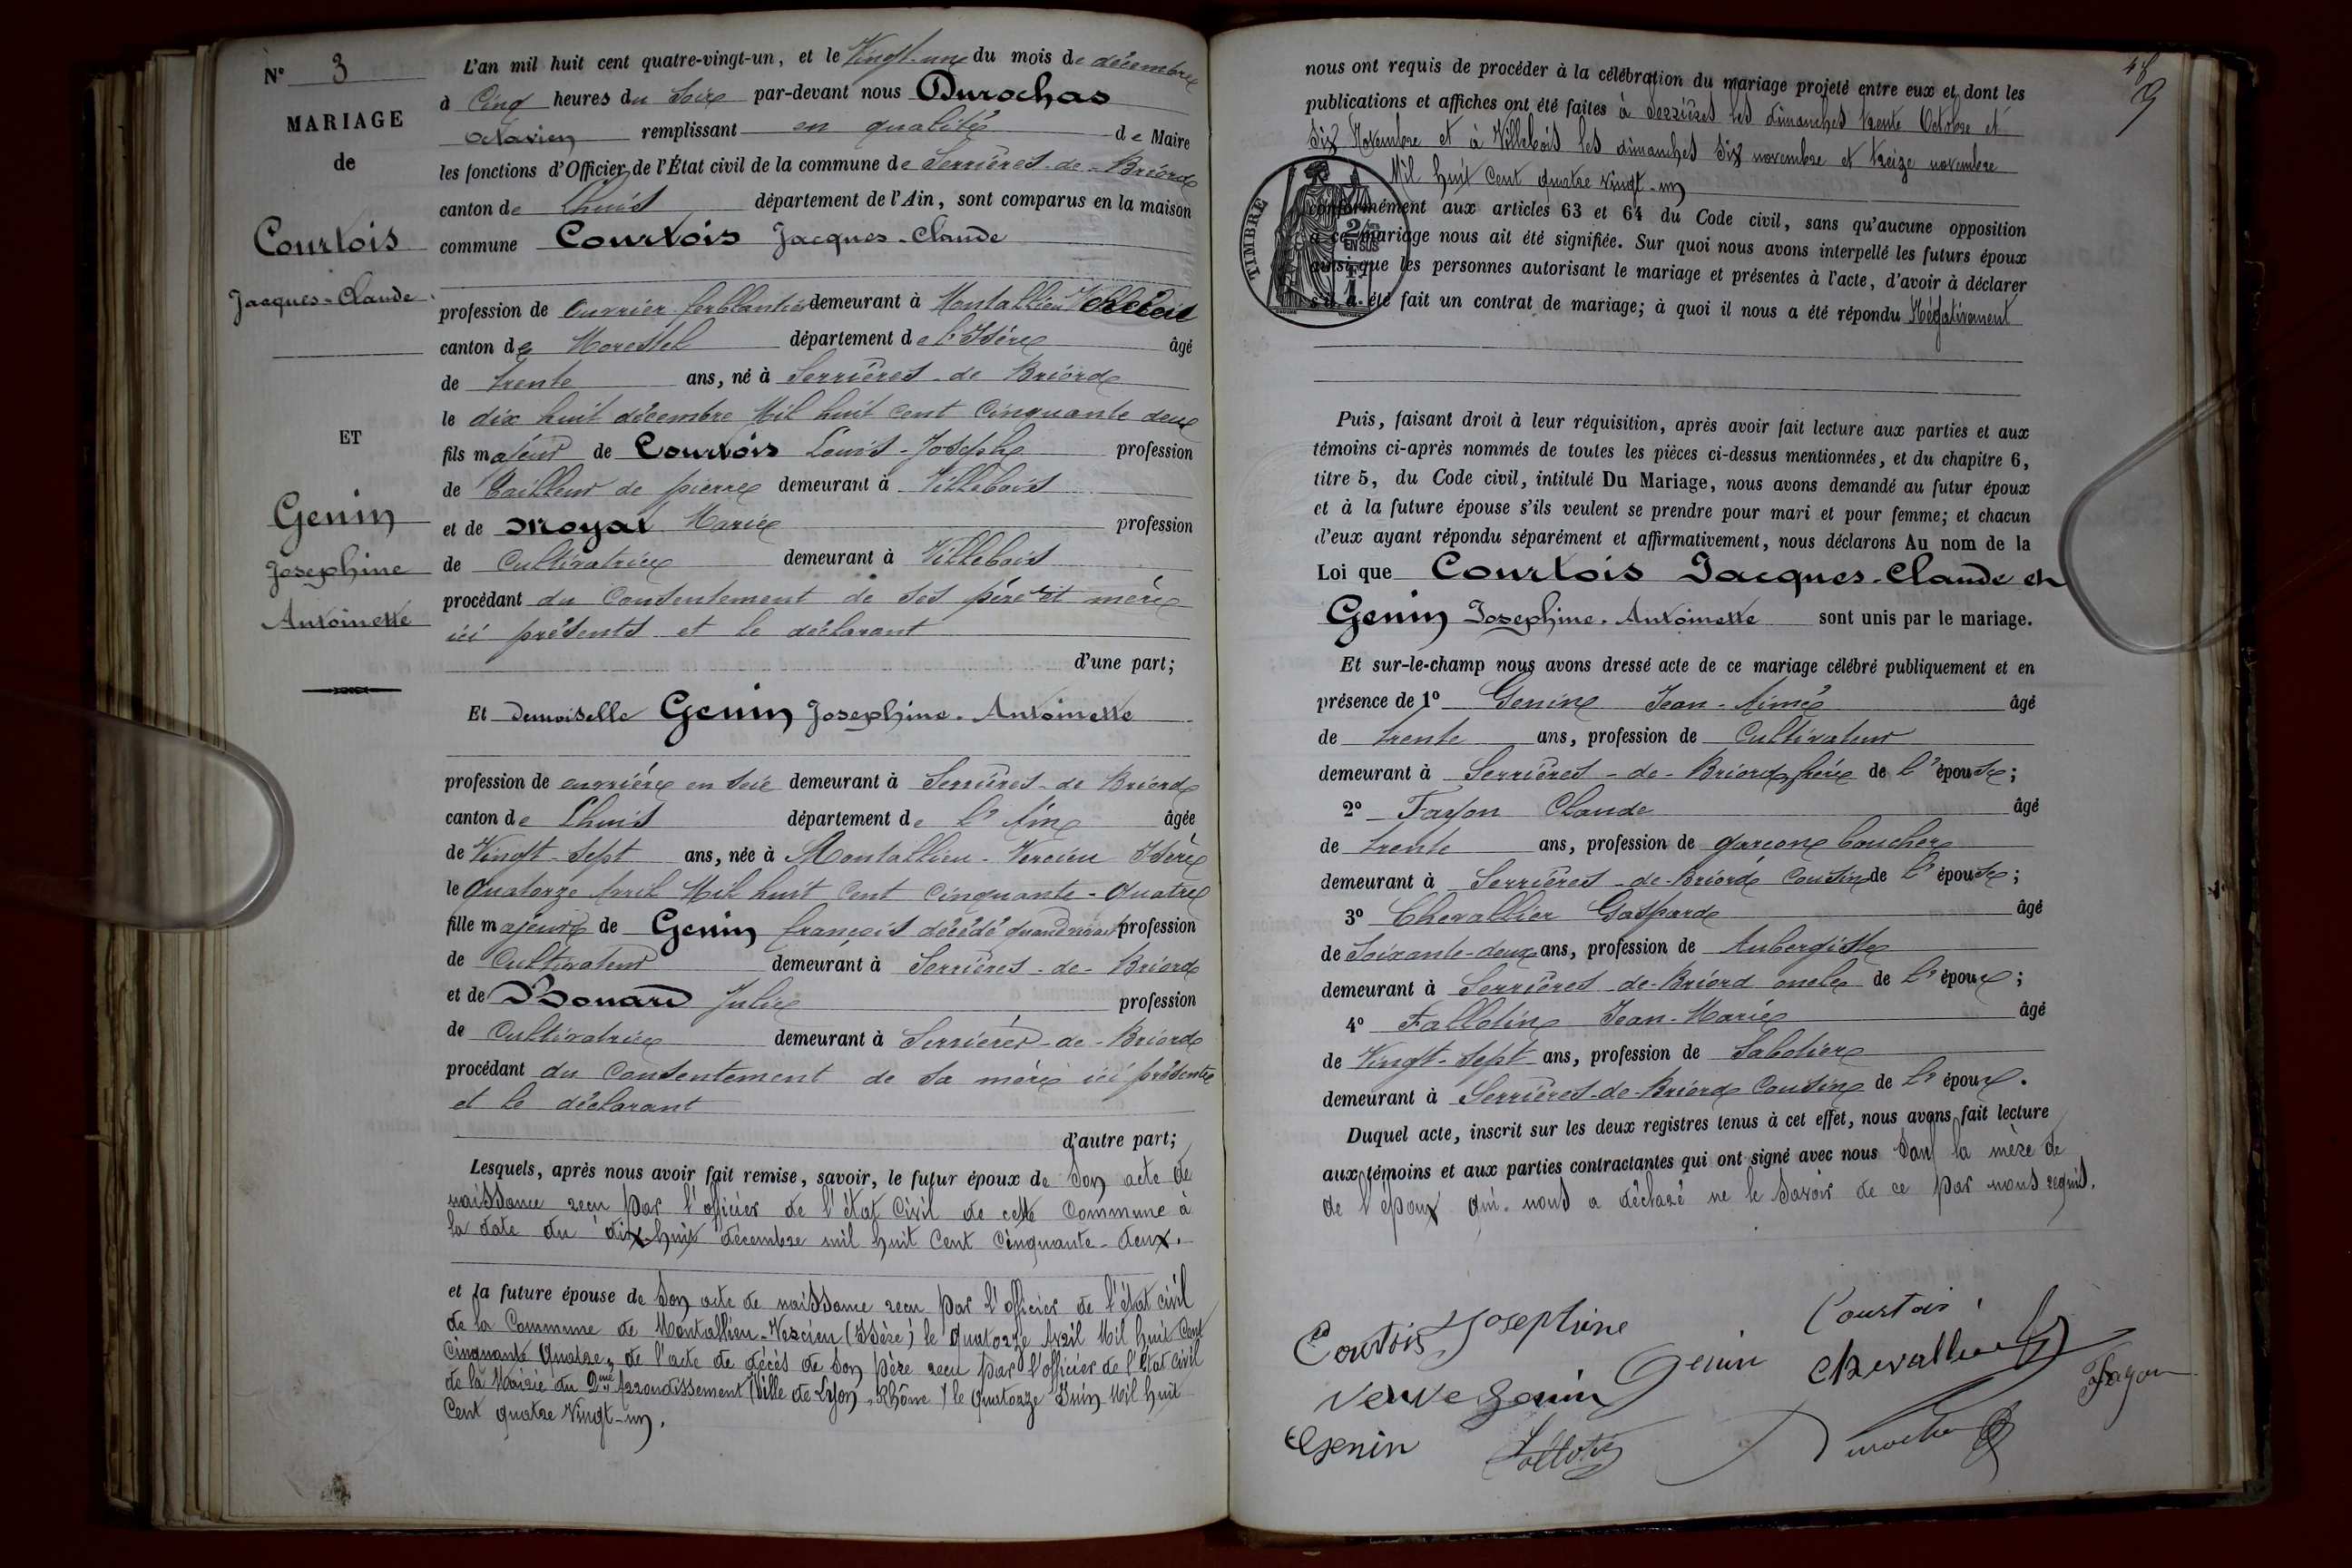 N° 3
MARIAGE
de
Courtois
Jacques-Claude
ET
Genin
Josephine
Antoinette
L'an mil huit cent quatre-vingt-un, et le Vingt-un du mois de décembre
à Cinq heures du Soir par-devant nous Durochas
octavien remplissant en qualité de Maire
les fonctions d'Officier de l'État civil de la commune de Serrières-de-Briord
canton de Lhuis département de l'Ain, sont comparus en la maison
commune Courtois Jacques-Claude
profession de ouvrier ferblantier demeurant à Montallieu
canton de Morestel département de l'Isère âgé
de trente ans, né à Serrières-de Briord
le dix huit décembre Mil huit cent Cinquante deux
fils majeur de Courtois Louis-Joseph profession
de Tailleur de pierre demeurant à Villebois
et de Moyat Marie profession
de Cultivatrice demeurant à Villebois
procédant du Consentement de ses père et mère
ici présents et le déclarant
d'une part;
Et Demoiselle Genin Josephine-Antoinette
profession de ouvrière en soie demeurant à Serrières-de Briord
canton de Lhuis département de l'Ain âgée
de Vingt-Sept ans, née à Montallieu-Vercieu Isère
le Quatorze Avril Mil huit Cent Cinquante-Quatre
fille majeure de Genin françois décédé quand vivait profession
de Cultivateur demeurant à Serrières-de-Briord
et de Bonard Julie profession
de Cultivatrice demeurant à Serrières-de-Briord
procédant du Consentement de sa mère ici présente
et le déclarant
d'autre part;
Lesquels, après nous avoir fait remise, savoir, le futur époux de Son acte de
naissance reçu par l'officier de l'état Civil de cette Commune à
la date du dix-huit décembre mil huit Cent Cinquante-deux.
et la future épouse de Son acte de naissance reçu par l'officier de l'état civil
de la Commune de Montallieu-Vercieu (Isère) le Quatorze Avril Mil huit Cent
Cinquante Quatre, de l'acte de décès de Son père reçu par l'officier de l'Etat civil
de la Mairie du 2me Arrondissement (Ville de Lyon, Rhône) le Quatorze Juin Mil huit
Cent quatre Vingt-un.
48
9
nous ont requis de procéder à la célébration du mariage projeté entre eux et dont les
publications et affiches ont été faites à Serrières les dimanches trente Octobre et
Six Novembre et à Villebois les dimanches Six novembre et treize novembre
Mil huit Cent Quatre Vingt-un
TIMBRE
2/10 EN SUS
conformément aux articles 63 et 64 du Code civil, sans qu'aucune opposition
à ce mariage nous ait été signifiée. Sur quoi nous avons interpellé les futurs époux
ainsi que les personnes autorisant le mariage et présentes à l'acte, d'avoir à déclarer
s'il a été fait un contrat de mariage; à quoi il nous a été répondu Négativement
Puis, faisant droit à leur réquisition, après avoir fait lecture aux parties et aux
témoins ci-après nommés de toutes les pièces ci-dessus mentionnées, et du chapitre 6,
titre 5, du Code civil, intitulé Du Mariage, nous avons demandé au futur époux
et à la future épouse s'ils veulent se prendre pour mari et pour femme; et chacun
d'eux ayant répondu séparément et affirmativement, nous déclarons Au nom de la
Loi que Courtois Jacques-Claude et
Genin Josephine-Antoinette sont unis par le mariage.
Et sur-le-champ nous avons dressé acte de ce mariage célébré publiquement et en
présence de 1° Genin Jean-Aimé âgé
de trente ans, profession de Cultivateur
demeurant à Serrières-de-Briord frère de l'épouse;
2° Fayon Claude âgé
de trente ans, profession de garçon boucher
demeurant à Serrières-de-Briord Cousin de l'épouse;
3° Chevallier Gaspard âgé
de Soixante-deux ans, profession de Aubergiste
demeurant à Serrières-de-Briord oncle de l'époux;
4° Fallotin Jean-Marie âgé
de Vingt-Sept ans, profession de Sabotier
demeurant à Serrières-de-Briord Cousin de l'époux.
Duquel acte, inscrit sur les deux registres tenus à cet effet, nous avons fait lecture
aux témoins et aux parties contractantes qui ont signé avec nous Sauf la mère de
de l'époux qui nous a déclaré ne le Savoir de ce par nous requis.
Courtois Josephine Genin Courtois
veuve Genin Chevallier Fayon
Genin Fallotin Durochas